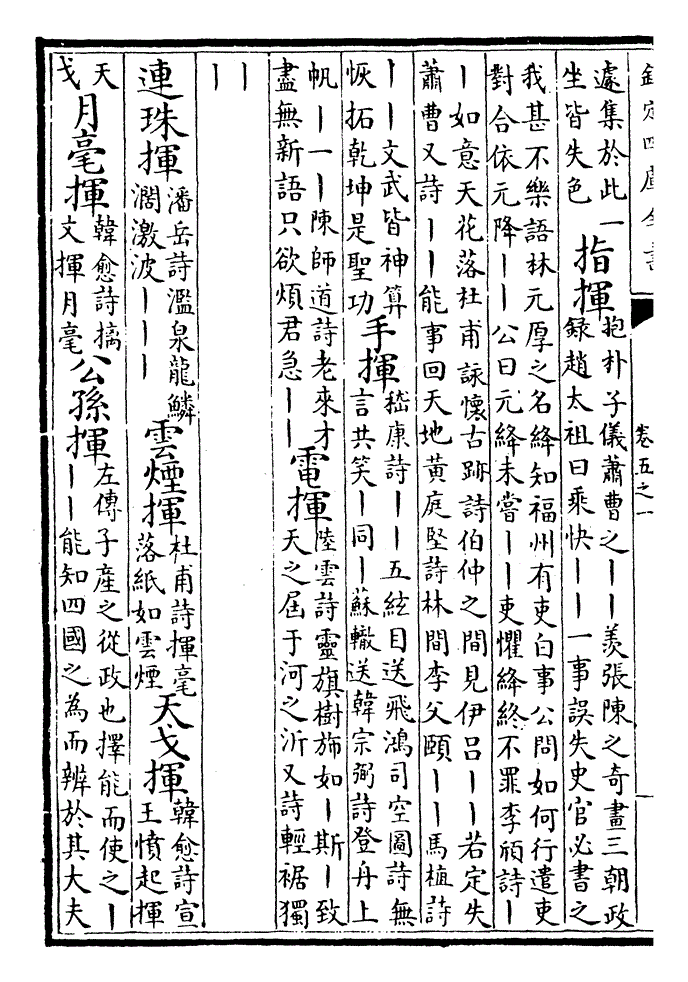 欽定四庫全書
卷五之一
遽集於此一
坐皆失色
指揮
抱朴子儀蕭曹之丨丨羨張陳之奇畫三朝政
録趙太祖曰乗快丨丨一事誤失史官必書之
我甚不樂語林元厚之名絳知福州有吏白事公問如何行遣吏
對合依元降丨丨公曰元絳未嘗丨丨吏懼絳終不罪李頎詩丨
丨如意天花落杜甫詠懷古跡詩伯仲之間見伊吕丨丨若定失
蕭曹又詩丨丨能事回天地黄庭堅詩林間李父頤丨丨馬植詩
丨丨文武皆神算
恢拓乾坤是聖功
手揮
嵇康詩丨丨五絃目送飛鴻司空圖詩無
言共笑丨同丨蘇轍送韓宗弼詩登舟上
帆丨一丨陳師道詩老來才
盡無新語只欲煩君急丨丨
電揮
陸雲詩靈旗樹斾如丨斯丨致
天之届于河之沂又詩輕裾獨
丨丨
連珠揮
潘岳詩濫泉龍鱗
瀾激波丨丨丨
雲煙揮
杜甫詩揮毫
落紙如雲煙
天戈揮
韓愈詩宣
王憤起揮
天
戈
月毫揮
韓愈詩摛
文揮月毫
公孫揮
左傳子産之從政也擇能而使之丨
丨丨能知四國之為而辨於其大夫